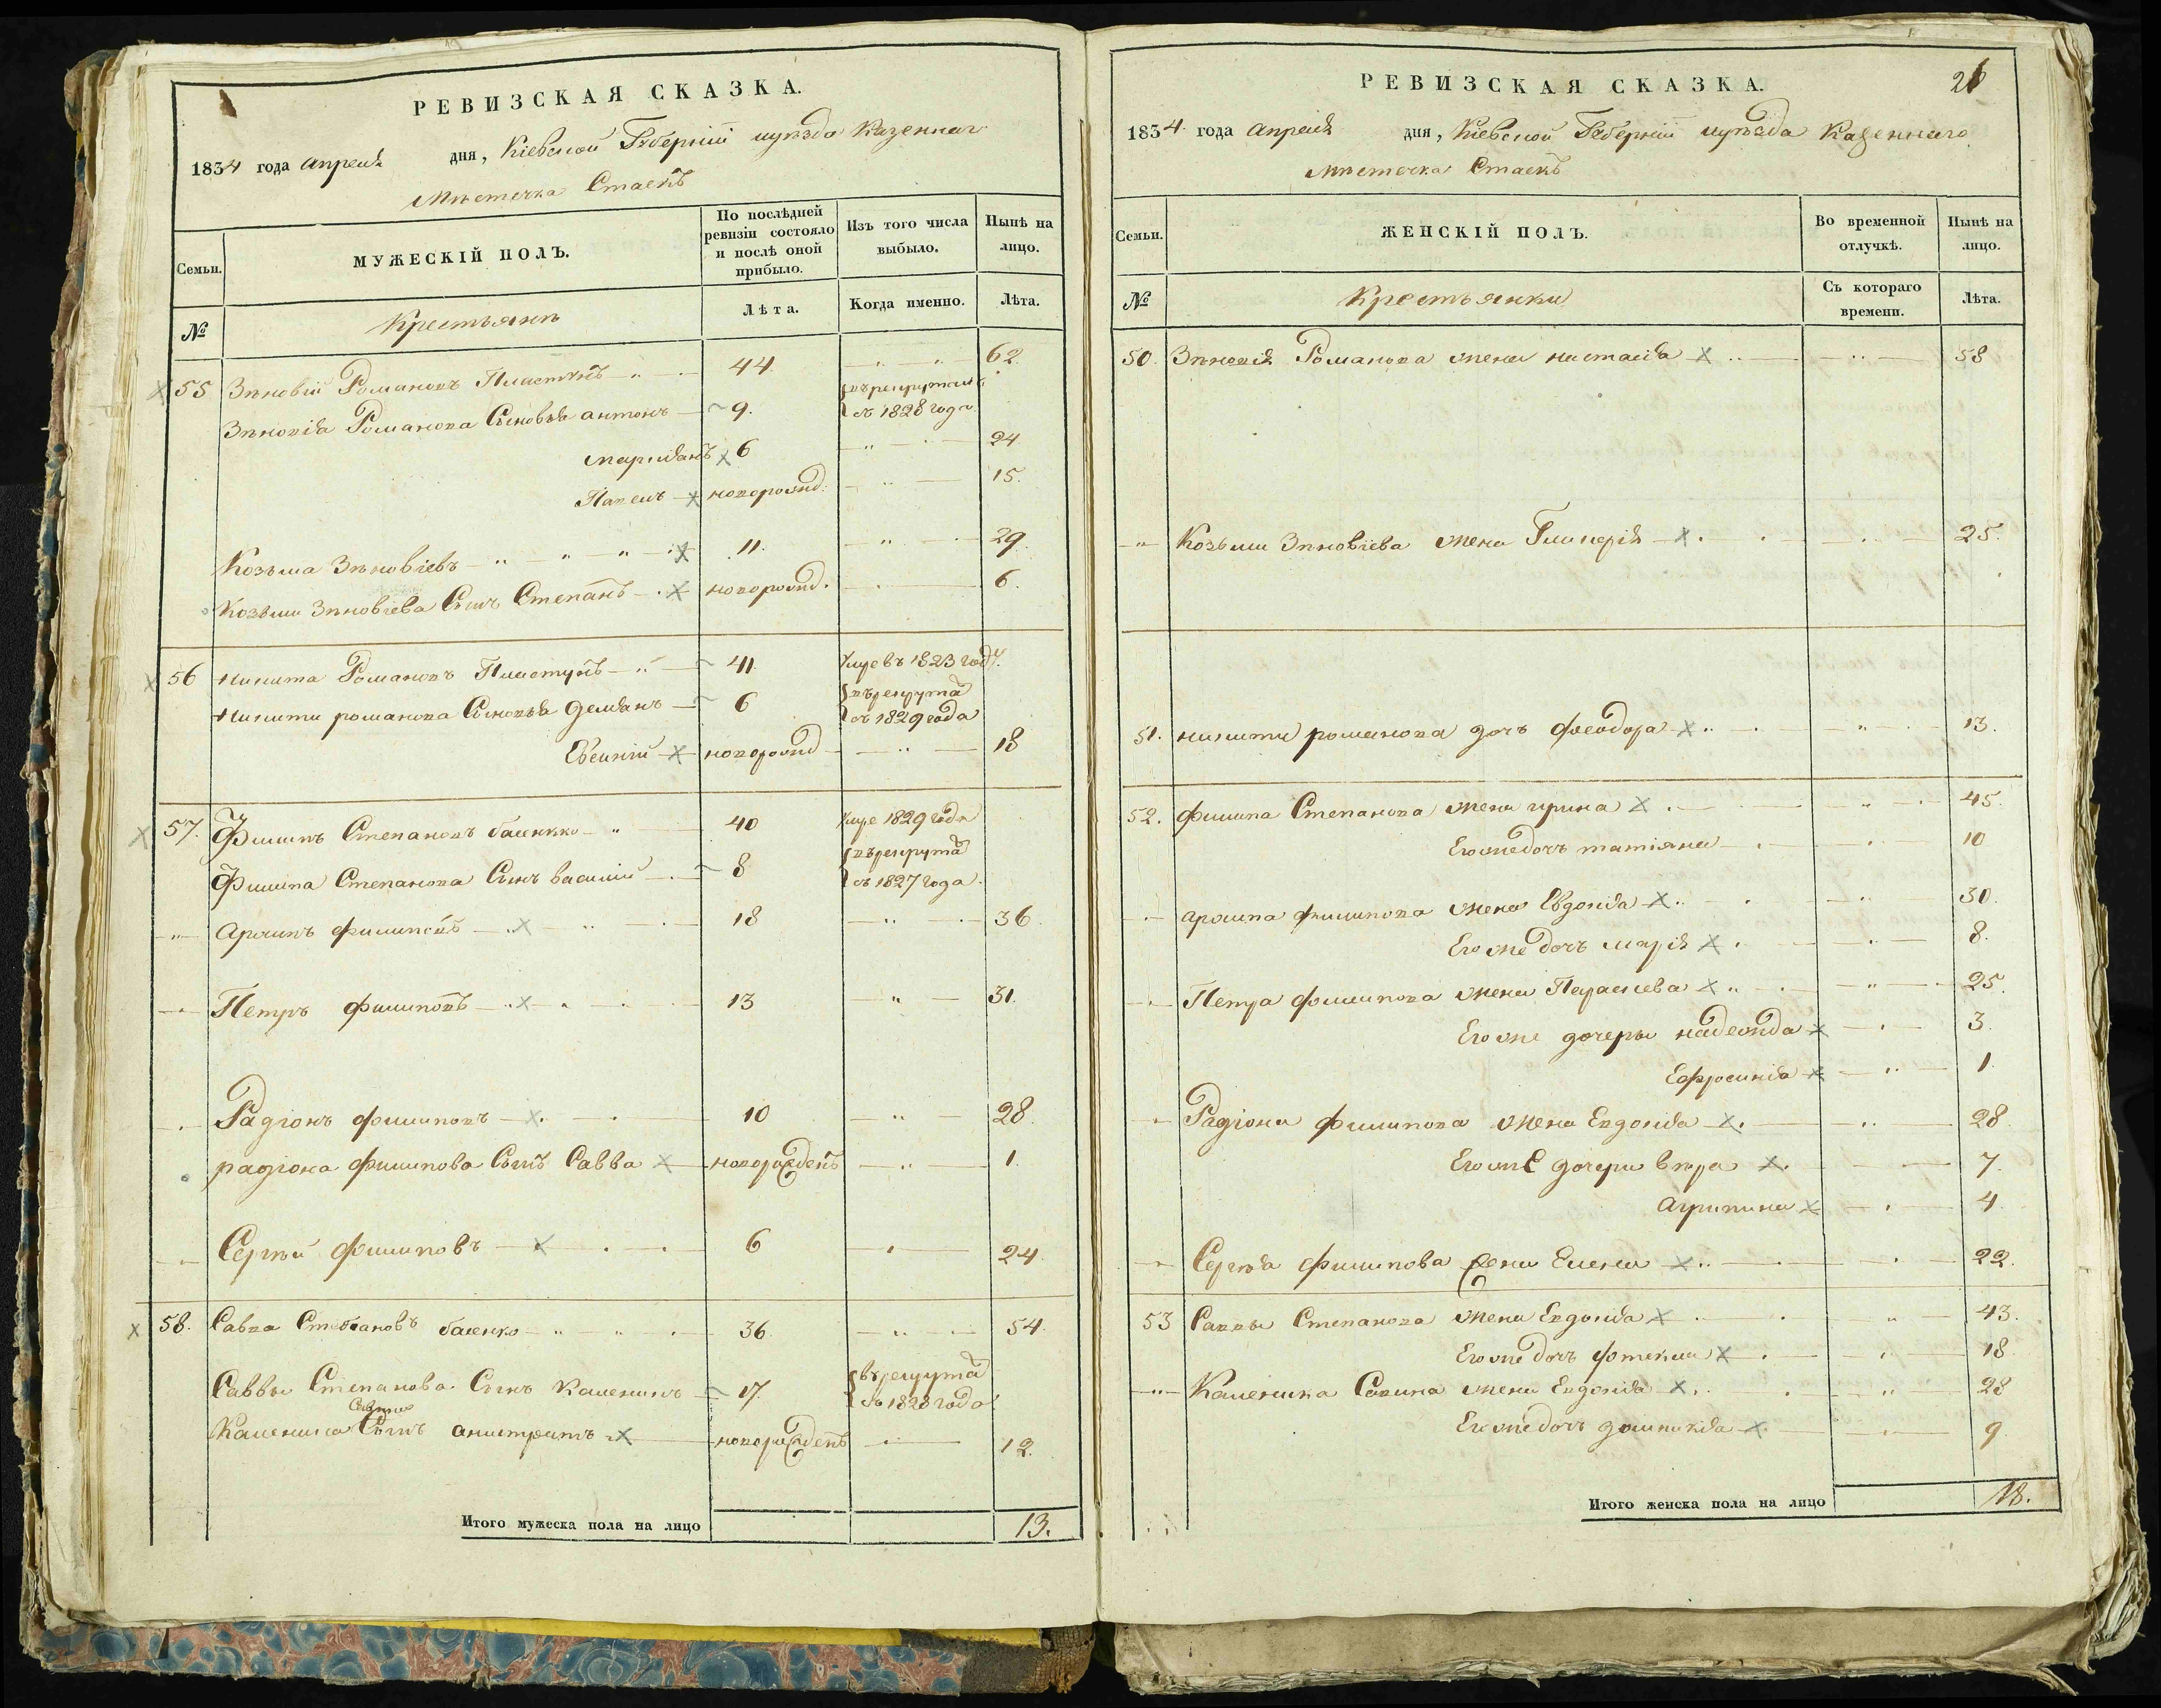 РЕВИЗСКАЯ СКАЗКА.
1834 года апреля дня, Кіевской Губерніи уезда Казеннаго
Мѣстечка Стаекъ
Семьи.
МУЖЕСКІЙ ПОЛЪ.
По послѣдней ревизіи состояло и послѣ оной прибыло.
Изъ того числа выбыло.
Нынѣ на лицо.
№
Крестьянѣ
Лѣта.
Когда именно.
Лѣта.
55 Зѣновій Романовъ Пластунъ 44 62
Зѣновія Романова Сыновья антонъ 9. въ рекруты съ 1828 года
6 24
Павелъ новорожд. 15.
Козьма Зѣновіевъ 11. 29.
Козьми Зѣновіева Сынъ Степанъ новорожд. 6.
56 Никита Романовъ Пластунъ 41. умре въ 1823 году.
Никити романова Сыновья Демянъ 6 въ рекрута съ 1829 года
новорожд 18
57. Филипъ Степановъ баленко 40 умре 1829 года
Филипа Степанова Сынъ василий 8 въ рекрута съ 1827 года.
Архипъ филиповъ 18 36.
Петръ филиповъ 13 31.
Радіонъ филиповъ 10 28.
радіона филипова Сынъ Савва новорожденъ 1.
Сергѣй филиповъ 6 24.
58. Савва Степановъ баленко 36. 54.
Саввы Степанова Сынъ Каленикъ 17. въ рекрута съ 1828 года
Савина
Каленика Сынъ новорожденъ 12.
Итого мужеска пола на лицо 13.
РЕВИЗСКАЯ СКАЗКА. 26
1834 года апреля дня, Кіевской Губерніи уезда Казеннаго
Мѣстечка Стаекъ
Семьи.
ЖЕНСКІЙ ПОЛЪ.
Во временной отлучкѣ.
Нынѣ на лицо.
№
Крестьянки
Съ котораго времени.
Лѣта.
50. Зѣновія Романова жена настасія 58
Козьми Зѣновіева жена Гликерія 25.
51. никити романова дочь феодора 13.
52. филипа Степанова жена ирина 45.
Его же дочь татіяна 10
архипа филипова жена Евдокія 30.
Его же дочь марія 8.
Петра филипова жена Параскева 25.
Его же дочеры надежда 3.
Ефросинія 1.
Радіона филипова жена Евдокія 28.
Его же дочери вѣра 7.
Агрипина 4
Сергѣя филипова жена Елена 22.
53 Саввы Степанова жена Евдокія 43.
Его же дочь фотекла 18
Каленика Савина жена Евдокія 28
Его же дочь домникія 9.
Итого женска пола на лицо 18.